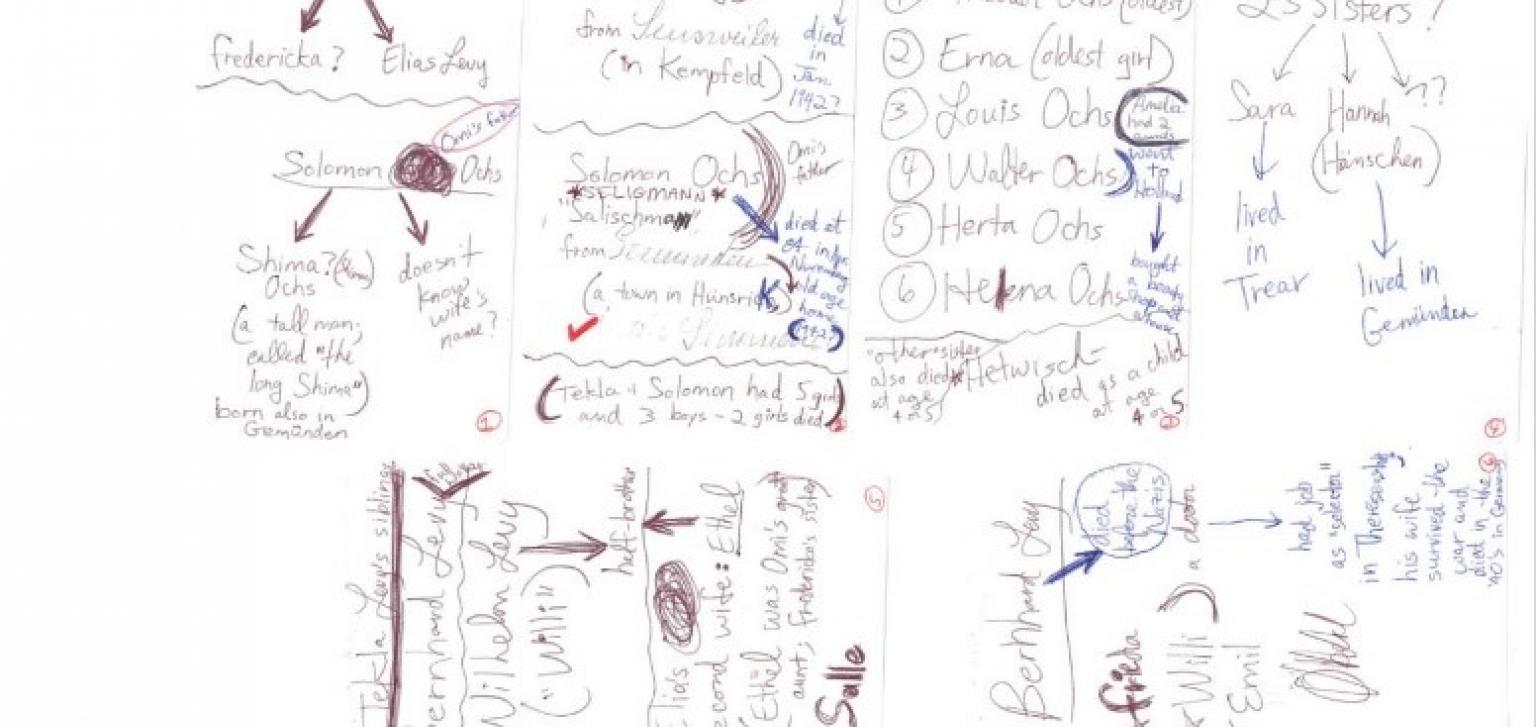 fredericka? Elias Levy
Omi's father
Solomon Ochs
Shima?
Ochs
(a tall man;
called "the
long Shima")
born also in
Gemünden
doesn't
know
wife's
name?
1
from
(in Kempfeld)
died
in
Jan.
1942?
Solomon Ochs
*SELIGMANN*
from
(a town in Hunsrick)
Omi's
father
died at
84 in
Nuremburg
old age
home
(1942?)
(Tekla + Solomon had 5 girls
and 3 boys - 2 girls died)
Ochs (oldest)
2 Erna (oldest girl)
3 Louis Ochs
had 2
4 Walter Ochs
went
to
Holland
5 Herta Ochs
6 Helena Ochs
bought
a beauty
shop
"other" sister
also died
at age
4 or 5
*Hetwisch-
died as a child
at age
4 or 5
sisters?
Sara
lived
in
Trear
Hannah
(Hänschen)
lived in
Gemünden
??
4
Tekla Levy's siblings
Bernhard Levy
Wilhelm Levy
("Willi")
half-brother
Elias
second wife: Ethel
(Ethel was Omi's great
aunt; Fredericka's sister)
Salle
5
Bernhard Levy
died
before the
Nazis
afrieda
Willi) a doctor
Emil
had job
as "selector"
in Theresienstadt
his wife
survived the
war and
died in the
'40s in Germany
6